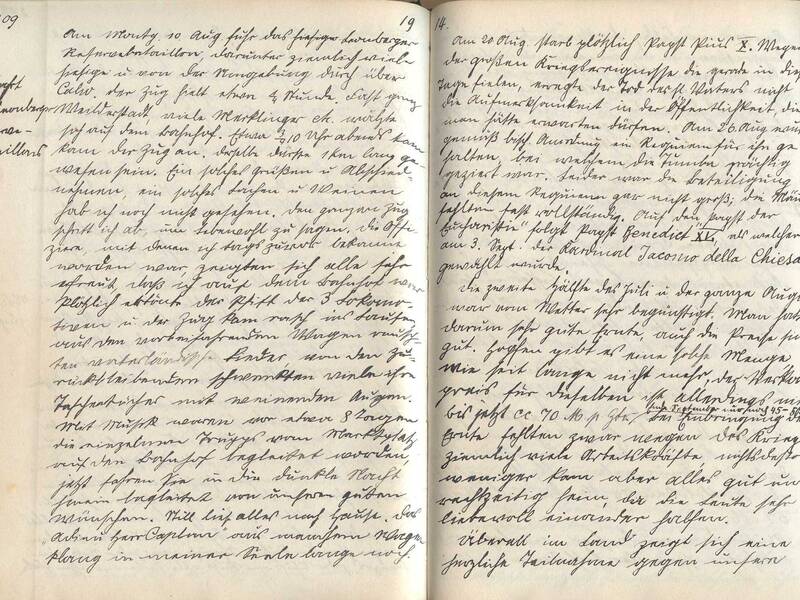 09
19
Am Montg. 10. Aug fuhr das hiesige Leonberger
Reservebataillon, darunter ziemlich viele
hiesige u von der Umgebung durch über
Calw, der Zug hielt etwa ½ Stunde. Fast ganz
Weilderstadt, viele Merklinger etc. wälzte
sich auf dem Bahnhof. Etwa ½10 Uhr abends
kam der Zug an. derselbe dürfte 1 km lang ge-
wesen sein. Ein solches Grüßen u Abschied-
nehmen, ein solches Lachen u Weinen
hab ich noch nie gesehen. Den ganzen Zug
schritt ich ab, um Lebewohl zu sagen. die Offi-
ziere, mit denen ich tags zuvor bekannt
worden war, zeigten sich alle sehr
erfreut, daß ich auf dem Bahnhof war.
Plötzlich ertönte der Pfiff der 3 Lokomo-
tiven u der Zug kam rasch ins Laufen
aus den vorbeifahrenden Wagen rausch-
ten vaterländische Lieder von den Zu-
rückbleibenden schwenkten viele ihre
Taschentücher mit weinenden Augen.
Mit Musik waren vor etwa 8 Tagen
die einzelnen Trupps vom Marktplatz
auf den Bahnhof begleitet worden,
jetzt fahren sie in die dunkle Nacht
hinein begleitet von unseren guten
Wünschen. Still lief alles nach Hause. das
"Adieu Herr Caplan" aus manchem Wagen
klang in meiner Seele lange noch.
14.
Am 20 Aug. starb plötzlich Papst Pius X. Wegen
der großen Kriegsereignisse die gerade in diese
Tage fielen, erregte der Tod des hl. Vaters nicht
die Aufmerksamkeit in der Öffentlichkeit, die
man hätte erwarten dürfen. Am 26 Aug
gemäß bisch. Anordnung ein Requiem für ihn ge-
halten, bei welchem die Tumba prächtig
geziert war. Leider war die Beteiligung
an diesem Requiem gar nicht groß; die
fehlten fast vollständig. Auf den Papst der
Eucharistie" folgt Papst Benedict XV, als welcher
am 3. Sept. der Kardinal Jacomo della Chiesa
gewählt wurde.
Die zweite Hälfte des Juli u der ganze
war vom Wetter sehr begünstigt. Man
darum sehr gute Ernte, auch die Preise
gut. Hopfen gibt es eine solche Menge
wie seit lange nicht mehr, der
preis für dieselben ist allerdings
bis jetzt cc 70 M p Ztr. Bei Einbringung der
Ernte fehlten zwar wegen des
ziemlich viele Arbeitskräfte,
weniger kam aber alles gut
rechtzeitig heim, da die Leute sehr
liebevoll einander halfen.
Überall im Land zeigt sich eine
herzliche Teilnahme gegen unsere